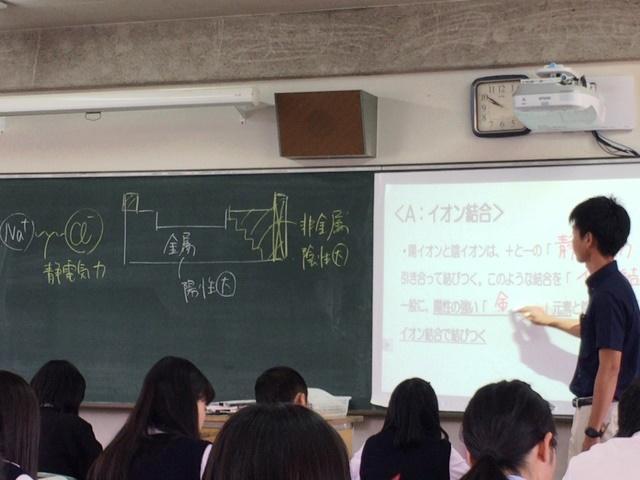 Na⁺ Cl⁻
静電気力
金属
陽性大
非金属
陰性大
<A：イオン結合>
・陽イオンと陰イオンは、＋と－の「静
引き合って結びつく。このような結合を「イ
一般に、陽性の強い「金 」元素と
イオン結合で結びつく